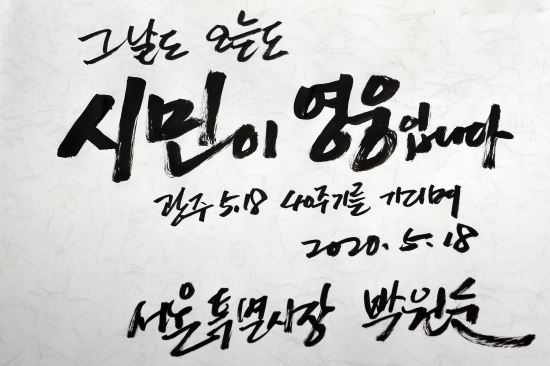 그날도 오늘도
시민이 영웅입니다
광주 5.18 40주기를 기리며
2020. 5. 18
서울특별시장 박원순